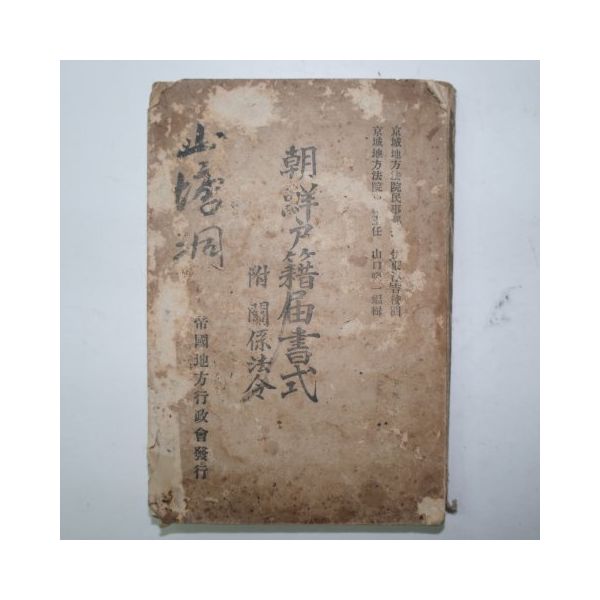 京城地方法院民事部
京城地方法院 主任 山口 一編輯
朝鮮戸籍届書式
附 關係法令
帝國地方行政會發行